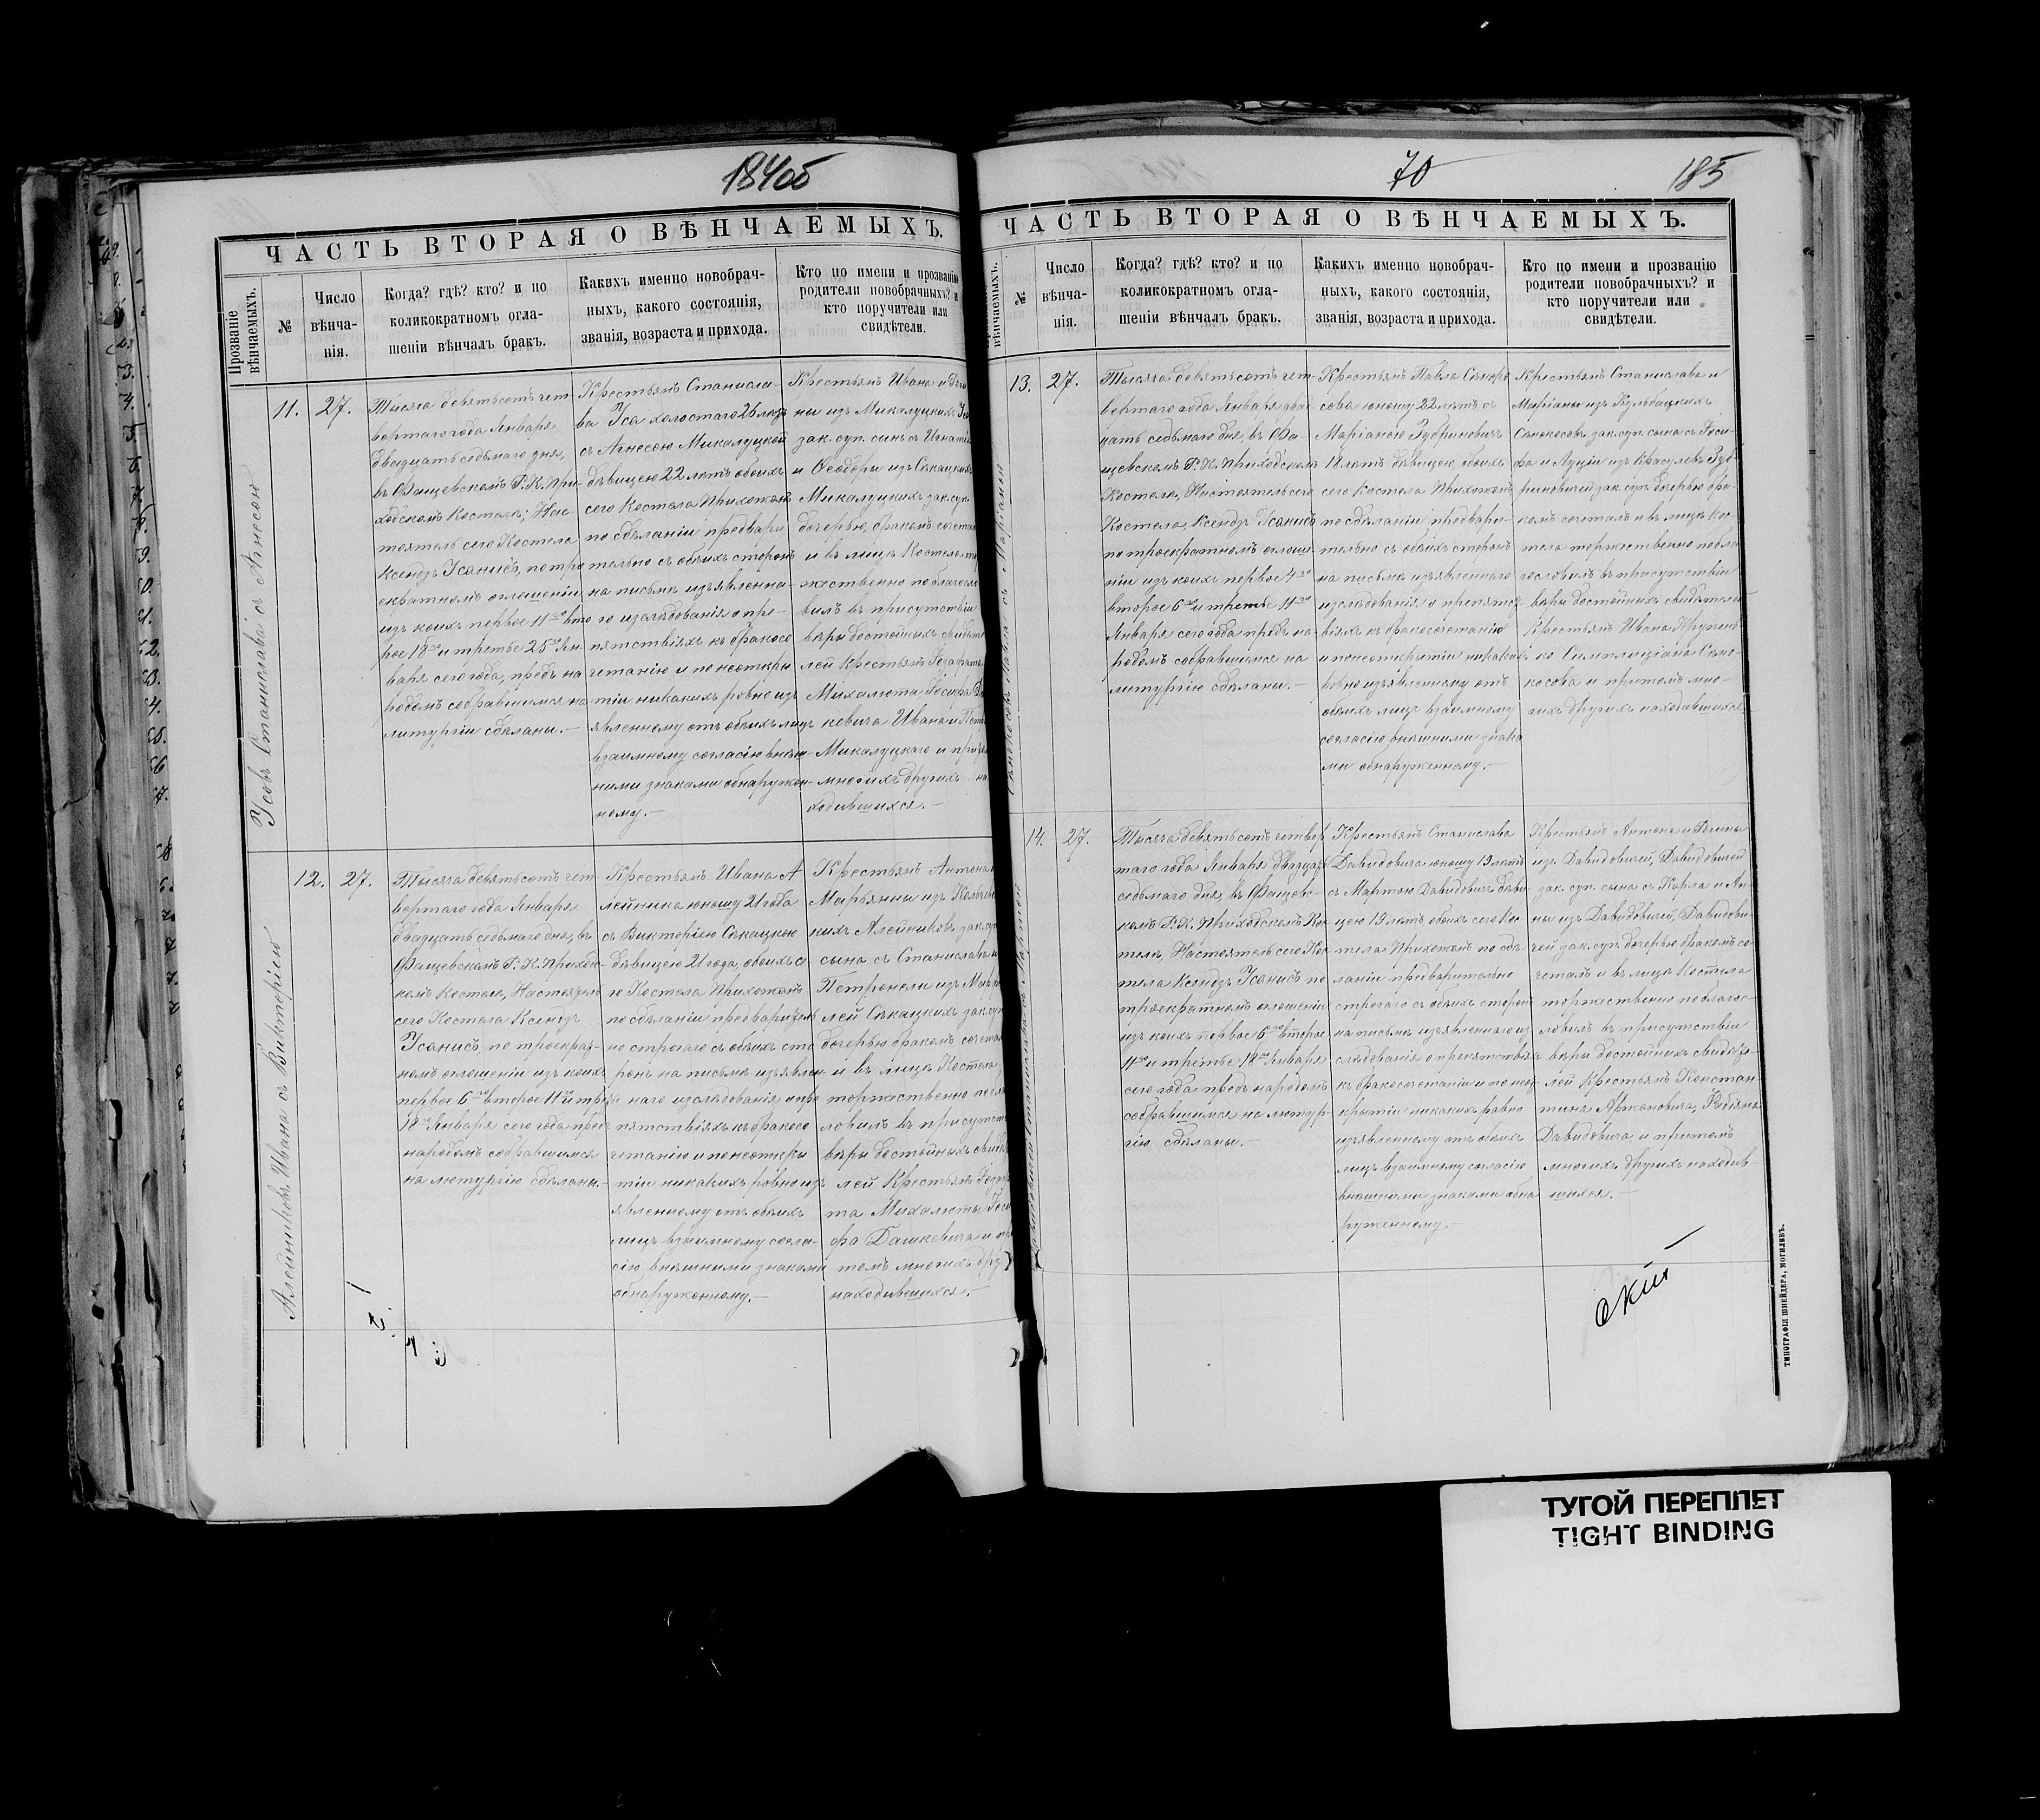 184об
ЧАСТЬ ВТОРАЯ О ВѢНЧАЕМЫХЪ.
Прозваніе вѣнчаемыхъ.
№
Число вѣнча-
нія.
Когда? гдѣ? кто? и по
коликократномъ огла-
шеніи вѣнчалъ бракъ.
Какихъ именно новобрач-
ныхъ, какого состоянія,
званія, возраста и прихода.
Кто по имени и прозванію
родители новобрачныхъ? и
кто поручители или
свидѣтели.
Усовъ Станиславъ съ Агнесою
11.
27.
Тысяча девятьсотъ чет-
вертаго года Января
двадцать седьмаго дня,
въ Фащевскомъ Р. К. При-
ходскомъ Костелѣ; Нас
тоятель сего Костела
Ксендзъ Усанисъ, по тро
екратномъ оглашеніи
изъ коихъ первое 11го вто
рое 18го и третье 25го Ян
варя сего года, предъ на
родомъ собравшимся на
литургіи сдѣланы.—
Крестьянъ Станисла-
ва Уса холостаго 26 лѣтъ
съ Агнесою Микалуцкой
дѣвицею 22 лѣтъ обоихъ
сего Костела Прихожанъ
по сдѣланіи предвари
тельно съ обѣихъ сторонъ
на письмѣ изъявленна-
го изслѣдованія о пре-
пятствіяхъ къ бракосо
четанію и по неоткры
тіи никакихъ ровно изъ
явленному отъ обѣихъ лицъ
взаимному согласію внѣш-
ними знаками обнаружен-
ному.—
Крестьянъ Ивана и
ны изъ Микалуцкихъ
зак. суп. сына съ Игнатія
и Ѳеодоры изъ Сѣкацкихъ
Микалуцкихъ зак. суп.
дочерью, бракомъ сочета
и въ лицѣ Костела
жественно поблагосло
вилъ въ присутствіи
вѣры достойныхъ свидѣте
лей Крестьянъ
Михалюты Іосифа Да
кевича Ивана и
Микалуцкаго и при
многихъ другихъ на
ходившихся.—
Алейниковъ Ивана съ Викторіею
12.
27.
Тысяча девятьсотъ чет-
вертаго года Января
двадцать седьмаго дня, въ
Фащевскомъ Р. К. Приход-
скомъ Костелѣ, Настоятель
сего Костела Ксендзъ
Усанисъ, по троекрат-
номъ оглашеніи изъ коихъ
первое 6го второе 11го и третье
18го Января сего года предъ
народомъ собравшимся
на литургію сдѣланы.—
Крестьянъ Ивана А
лейника юношу 21 года
съ Викторіею Сѣкацкою
дѣвицею 21 года, обоихъ се
го Костела Прихожанъ
по сдѣланіи предваритель
но строгаго съ обѣихъ сто
ронъ на письмѣ изъявлен-
наго изслѣдованія о пре
пятствіяхъ къ бракосо
четанію и по неоткры
тіи никакихъ ровно изъ
явленному отъ обѣихъ
лицъ взаимному согла-
сію внѣшними знаками
обнаруженному.—
Крестьянъ Антона
Марьянны изъ
кихъ Алейниковъ зак. суп
сына съ Станислава и
Петронели изъ
лей Сѣкацкихъ зак. суп
дочерью бракомъ сочета
и въ лицѣ Костела
торжественно
ловилъ въ присутст
вѣры достойныхъ свидѣте
лей Крестьянъ
та Михалюты Іоси
фа Дашкевича и при
томъ многихъ дру
находившихся.—
70
185
ЧАСТЬ ВТОРАЯ О ВѢНЧАЕМЫХЪ.
вѣнчаемыхъ.
№
Число
вѣнча-
нія.
Когда? гдѣ? кто? и по
коликократномъ огла-
шеніи вѣнчалъ бракъ.
Какихъ именно новобрач-
ныхъ, какого состоянія,
званія, возраста и прихода.
Кто по имени и прозванію
родители новобрачныхъ? и
кто поручители или
свидѣтели.
13.
27.
Тысяча девятьсотъ чет-
вертаго года Января двад
цать седьмаго дня, въ Фа-
щевскомъ Р. К. Приходскомъ
Костелѣ, Настоятель сего
Костела, Ксендзъ Усанисъ
по троекратномъ оглаше
ніи изъ коихъ первое 4го
второе 6го и третье 11го
Января сего года предъ на
родомъ собравшимся на
литургію сдѣланы.—
Крестьянъ Павла Сѣноко
сова юношу 22 лѣтъ съ
Маріаною Зубриновичъ
18 лѣтъ дѣвицею, обоихъ
сего Костела Прихожанъ
по сдѣланіи предвари-
тельно съ обѣихъ сторонъ
на письмѣ изъявленнаго
изслѣдованія о препятст
віяхъ къ бракосочетанію
и по неоткрытіи никакихъ
ровно изъявленному отъ
обѣихъ лицъ взаимному
согласію внѣшними знака
ми обнаруженному.—
Крестьянъ Станислава и
Маріаны изъ Кульбацкихъ
Сѣнокосовъ зак. суп. сына съ Іоси-
фа и Луціи изъ Красулевъ Зуб-
риновичей зак. суп. дочерью бра-
комъ сочеталъ и въ лицѣ Кос-
тела торжественно побла
гословилъ въ присутствіи
вѣры достойныхъ свидѣтелей
Крестьянъ Ивана
ко Симплиціана Сѣно-
косова и притомъ мно-
гихъ другихъ находившихся.
14.
27.
Тысяча девятьсотъ четвер
таго года Января двадцать
седьмаго дня, въ Фащевс-
комъ Р. К. Приходскомъ Кос
телѣ, Настоятель сего Кос
тела Ксендзъ Усанисъ по
троекратномъ оглашеніи
изъ коихъ первое 6го второе
11го и третье 18го Января
сего года предъ народомъ
собравшимся на литур-
гію сдѣланы.—
Крестьянъ Станислава
Давидовича юношу 19 лѣтъ
съ Мартою Давидовичъ дѣви
цею 19 лѣтъ обоихъ сего Кос-
тела Прихожанъ по сдѣ-
ланіи предварительно
строгаго съ обѣихъ сторонъ
на письмѣ изъявленнаго из
слѣдованія о препятствіяхъ
къ бракосочетанію и по неот
крытіи никакихъ равно
изъявленному отъ обоихъ
лицъ взаимному согласію
внѣшними знаками обна
руженному.—
Крестьянъ Антона и Регины
изъ Давидовичей, Давидовичей
зак. суп. сына съ Карла и Ан-
ны изъ Давидовичей, Давидови-
чей зак. суп. дочерью бракомъ со-
четалъ и въ лицѣ Костела
торжественно поблагос-
ловилъ въ присутствіи
вѣры достойныхъ свидѣте-
лей Крестьянъ Констан
тина Фабіана
Давидовича, и притомъ
многихъ другихъ находив-
шихся.—
скій
ТИПОГРАФІЯ ШНЕЙДЕРА, МОГИЛЕВЪ.
ТУГОЙ ПЕРЕПЛЕТ
TIGHT BINDING